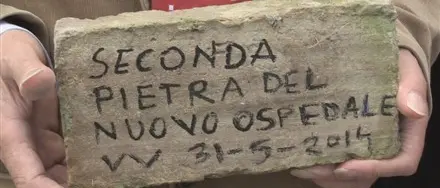 SECONDA
PIETRA DEL
NUOVO OSPEDALE
VV 31-5-2014